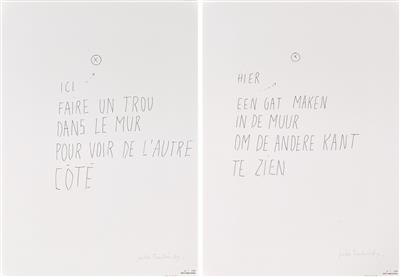 ICI
FAIRE UN TROU
DANS LE MUR
POUR VOIR DE L'AUTRE
CÔTÉ
HIER
EEN GAT MAKEN
IN DE MUUR
OM DE ANDERE KANT
TE ZIEN